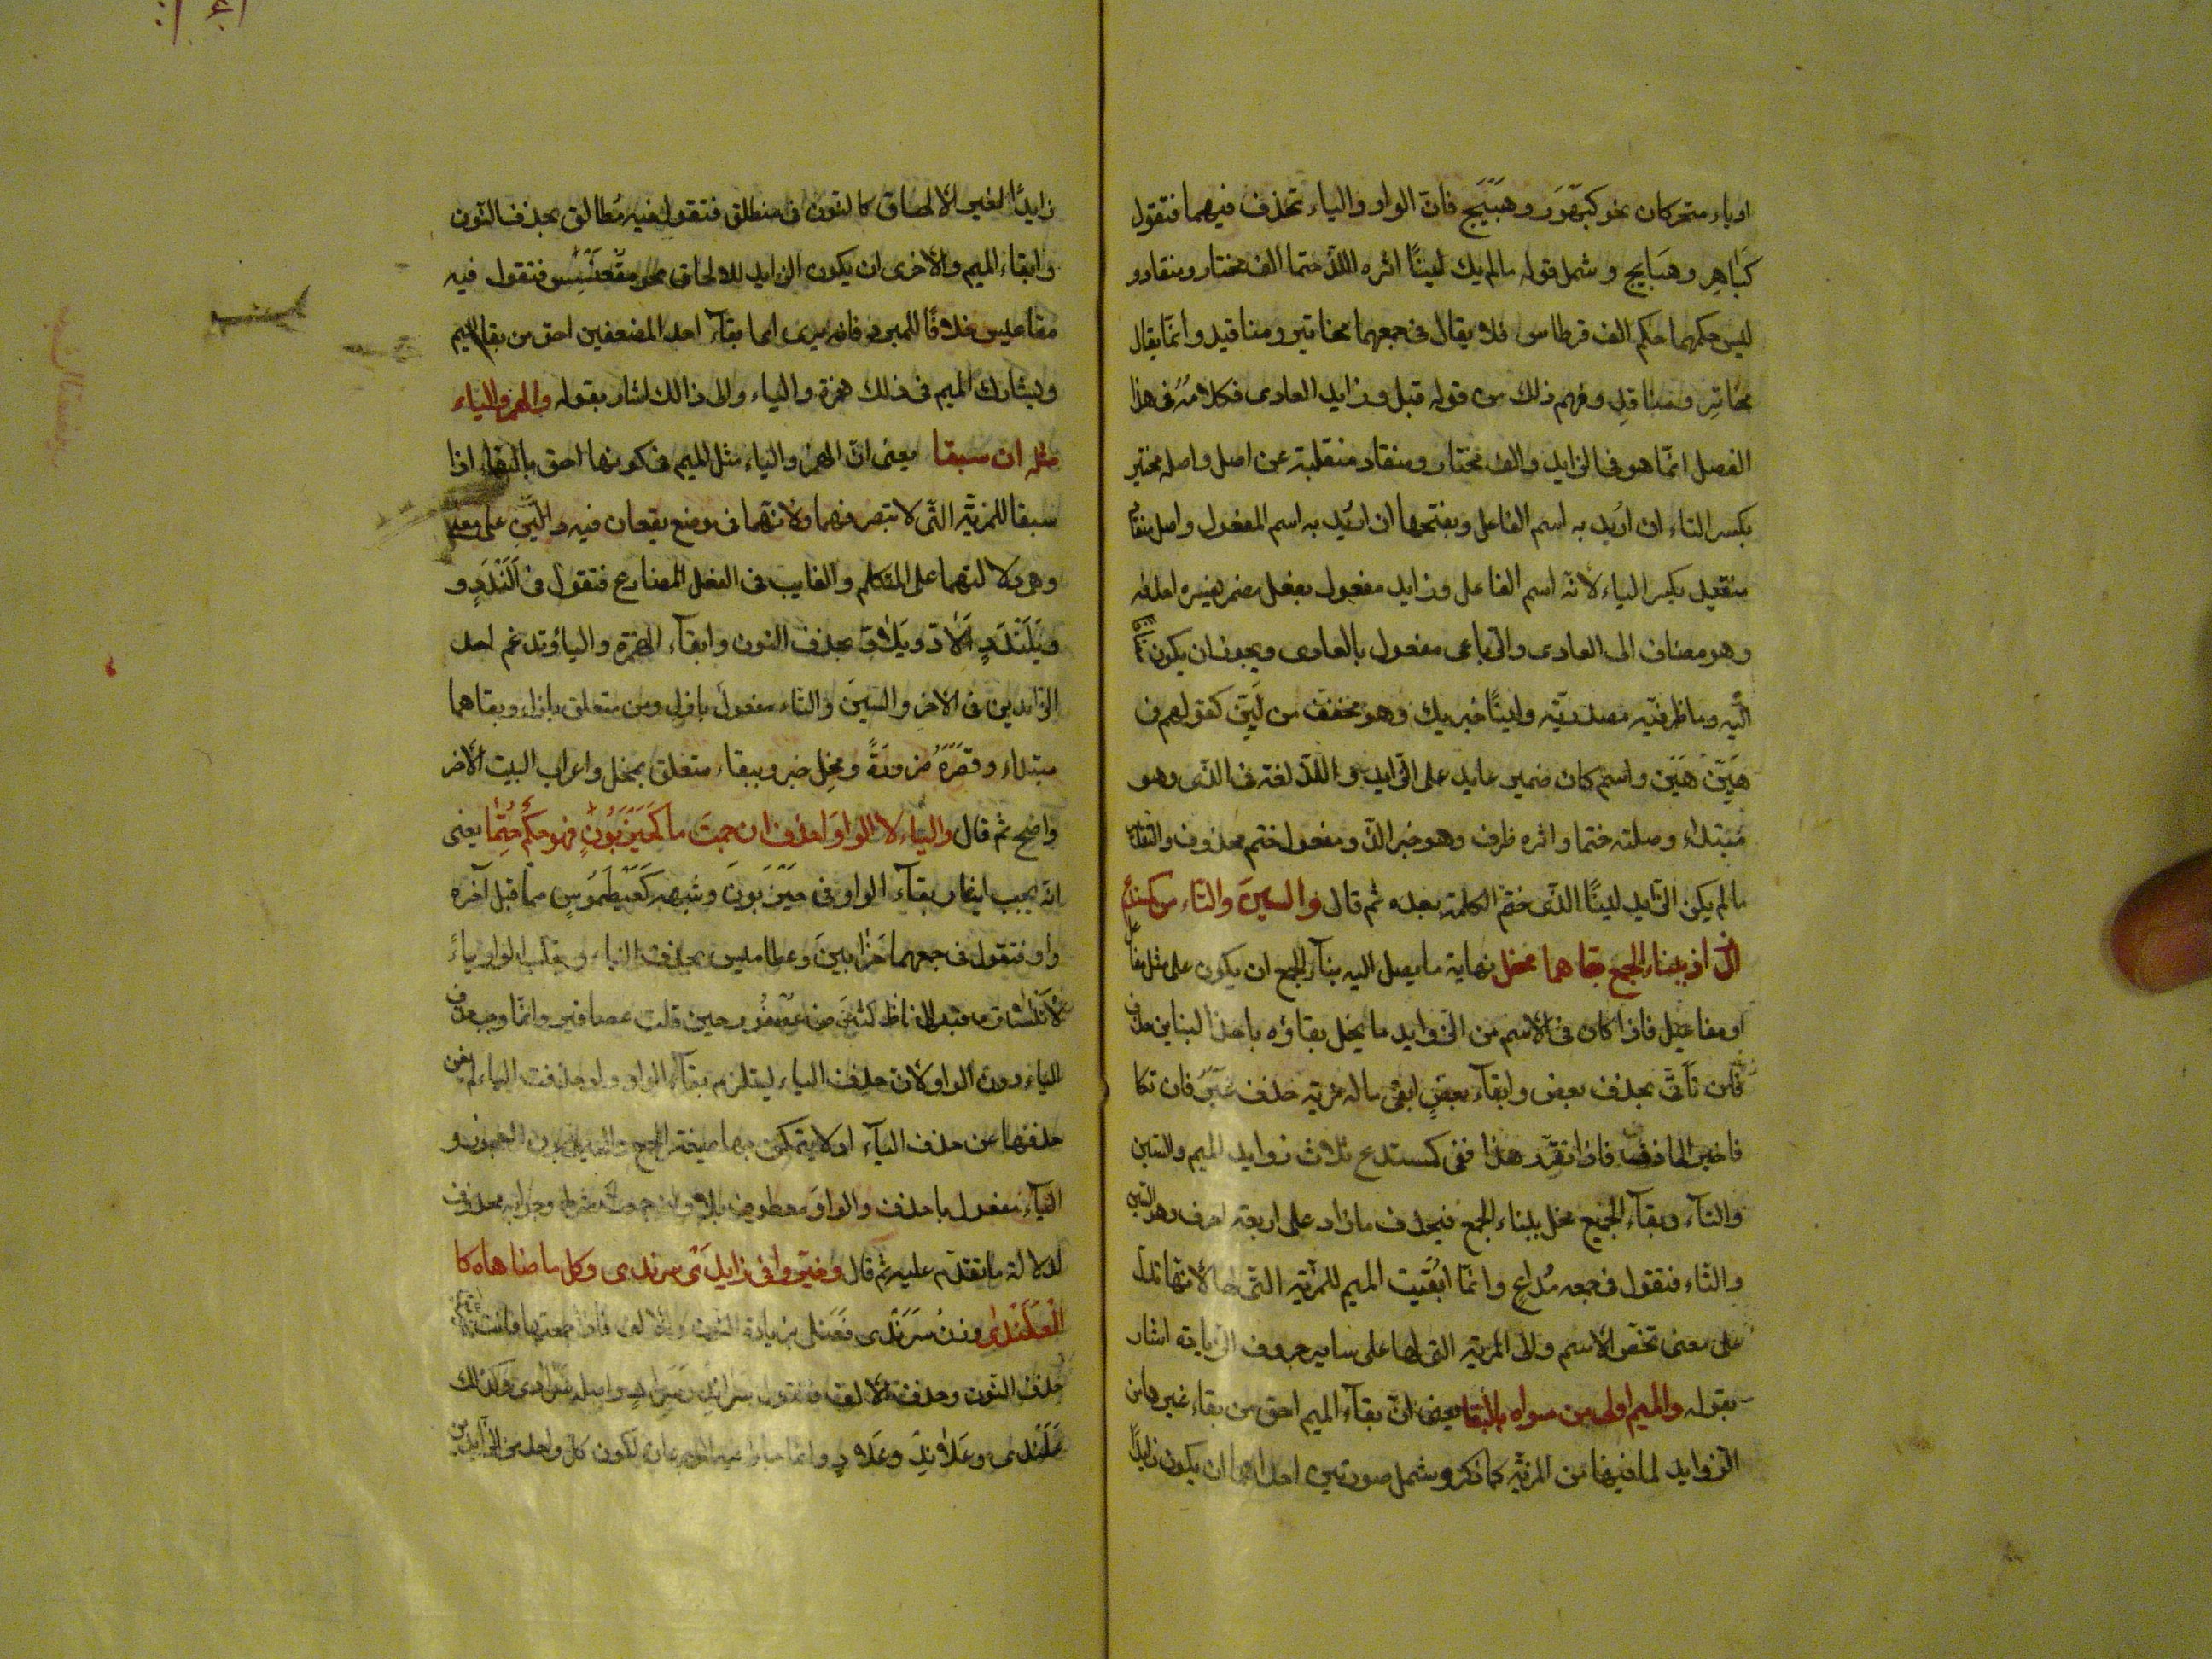 او ياء متحركان نحو كنهور وهبيخ فان الواو والياء تحذف فيهما فتقول
كناهر وهبايخ وشمل قوله مالم يك لينا اثره اللذ ختما الف مختار ومنقاد و
ليس حكمهما حكم الف قرطاس فلا يقال فى جمعهما مخاتير ومناقيد وانما يقال
مخاتر ومناقد وفهم ذلك من قوله قبل وزايد العادى فكلامه فى هذا
الفصل انما هو فى الزايد والف مختار ومنقاد منقلبة عن اصل واصله مختير
بكسر التاء ان اريد به اسم الفاعل وبفتحها ان اريد به اسم المفعول واصل منقاد
منقيد بكسر الياء لانه اسم الفاعل وزايد مفعول بفعل مضمر يفسره احذفه
وهو مضاف الى العادى والرباعى مفعول بالعادى ويجوز ان يكون
اليه وما ظرفية مصدرية ولينا خبر يك وهو مخفف من لين كقولهم فى
هين هين واسم كان ضمير عايد على الزايد واللذ لغة فى الذى وهو
مبتداء وصلته ختما واثره ظرف وهو خبر الذ ومفعول ختم محذوف والتقدير
مالم يكن الزايد لينا الذى ختم الكلمة بعده ثم قال والسين والتاء من كمستدع
ازل اذ ببناء الجمع بقاهما مخل نهاية ما يصل اليه بناء الجمع ان يكون على مثل مفاعل
او مفاعيل فاذا كان فى الاسم من الزوايد ما يخل بقاؤه باحد البناين حذف
فان تأتى بحذف بعض وابقاء بعض ابقى ماله مزية حذف غيره فان تكا
فا خير الحاذف فاذا تقرر هذا ففى كمستدع ثلاث زوايد الميم والسين
والتاء وبقاء الجميع مخل ببناء الجمع فيحذف مازاد على اربعة احرف وهو السين
والتاء فتقول فى جمعه مداع وانما ابقيت الميم للمزية التى لها لانها تدل
على معنى تخص الاسم والى المزية التى لها على ساير حروف الزيادة اشار
بقوله والميم اولى من سواه بالبقا يعنى ان بقاء الميم احق من بقاء غيرها من
الزوايد لما فيها من المزية كما ذكر وشمل صورتين احداهما ان يكون زايدا
زايدا لغير الالحاق كالنون فى منطلق فتقول فيه مطالق بحذف النون
وابقاء الميم والاخرى ان يكون الزايد للالحاق نحو مقعنسس فتقول فيه
مقاعيس خلافا للمبرد فانه يرى ان ابقاء احد المضعفين احق من بقا الميم
ويشارك الميم فى ذلك همزة والياء والى ذالك اشار بقوله والهمز والياء
مثله ان سبقا يعنى ان الهمز والياء مثل الميم فى كونها احق بالبقاء اذا
سبقا للمزية التى لا تتصرفهما ولانهما فى موضع يقعان فيه دالين على معنى
وهى دلالتهما على المتكلم والغايب فى الفعل المضارع فتقول فى النددٍ و
ويلندد الاد ويلاد بحذف النون وابقاء الهمزة والياء وتدغم احد
الزايدين فى الاخر والسين والتاء مفعول بازل ومن متعلق بازل وبقاهما
مبتداء وقصره ضرورة ومخل خبر وببقاء متعلق بمخل واعراب البيت الاخر
واضح ثم قال والياء لا الواو احذف ان جمعت ما كحيزبون فهو حكم حتما يعنى
انه يجب ايثار بقاء الواو فى حيزبون وشبهه كعيطموس مما قبل آخره
واو فتقول فى جمعهما حزابين وعطاميس بحذف الياء وبقلب الواو ياء
حين قلت عصافير وانما وجب حذف
الياء دون الواو لان حذف الياء ليستلزم بقاء الواو ولو حذفت الياء لم يغن
حذفها عن حذف الياء اذ لا يتمكن بها صيغة الجمع
الياء مفعول باحذف والواو معطوف بلا وان جمعت شرط وجوابه محذوف
لدلالة ما تقدم عليه ثم قال وخيروا فى زايدى سرندى وكل ما ضاهاه كا
لعلندى وزن سرندى فعنلى بزيادة النون والالف فاذا جمعتها فانت
حذف النون وحذف الالف فتقول سراند وسراد واصله سرادى وكذلك
علندى وعلاند وعلاد وانما لكون كل واحد من الزايدين